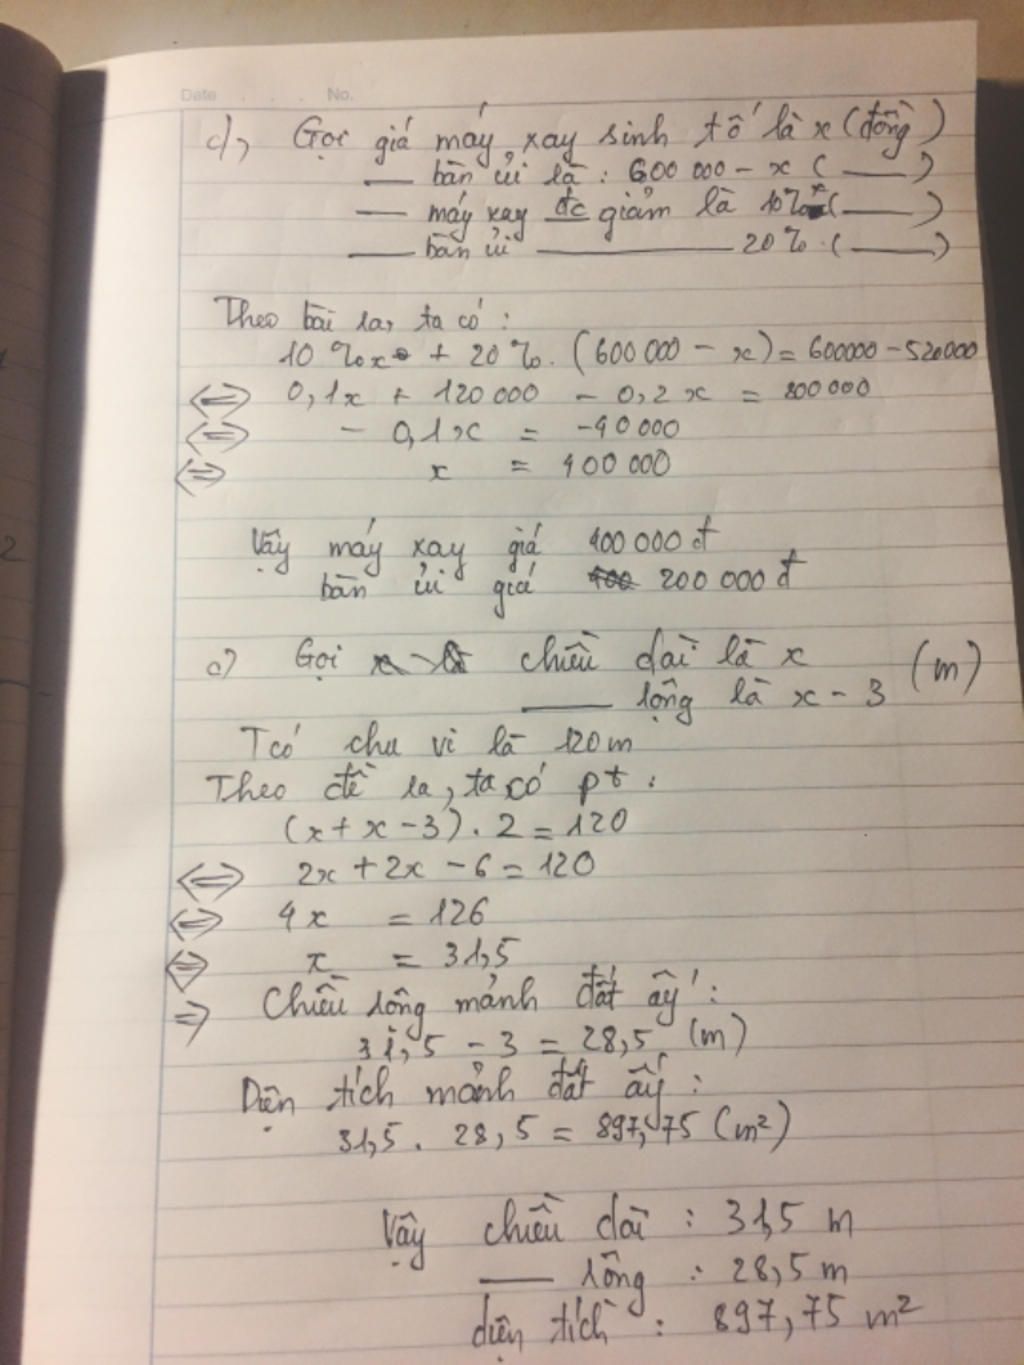 Date . . . No.
d), Gọi giá máy xay sinh tố là x (đồng)
— bàn ủi là : 600 000 - x ( — )
— máy xay đc giảm là 10% ( — )
— bàn ủi — 20% . ( — )
Theo bài ra, ta có :
10 % x + 20 %. (600 000 - x) = 600000 - 520000
<=> 0,1x + 120 000 - 0,2x = 800000
<=> - 0,1x = -40 000
<=> x = 400 000
Vậy máy xay giá 400 000 đ
bàn ủi giá 200 000 đ
c) Gọi chiều dài là x (m)
— rộng là x - 3
Tcó chu vi là 120m
Theo đề ra, ta có pt :
(x + x - 3) . 2 = 120
<=> 2x + 2x - 6 = 120
<=> 4x = 126
<=> x = 31,5
=> Chiều rộng mảnh đất ấy :
31,5 - 3 = 28,5 (m)
Diện tích mảnh đất ấy :
31,5 . 28,5 = 897,75 (m²)
Vậy chiều dài : 31,5 m
— rộng : 28,5 m
diện tích : 897,75 m²